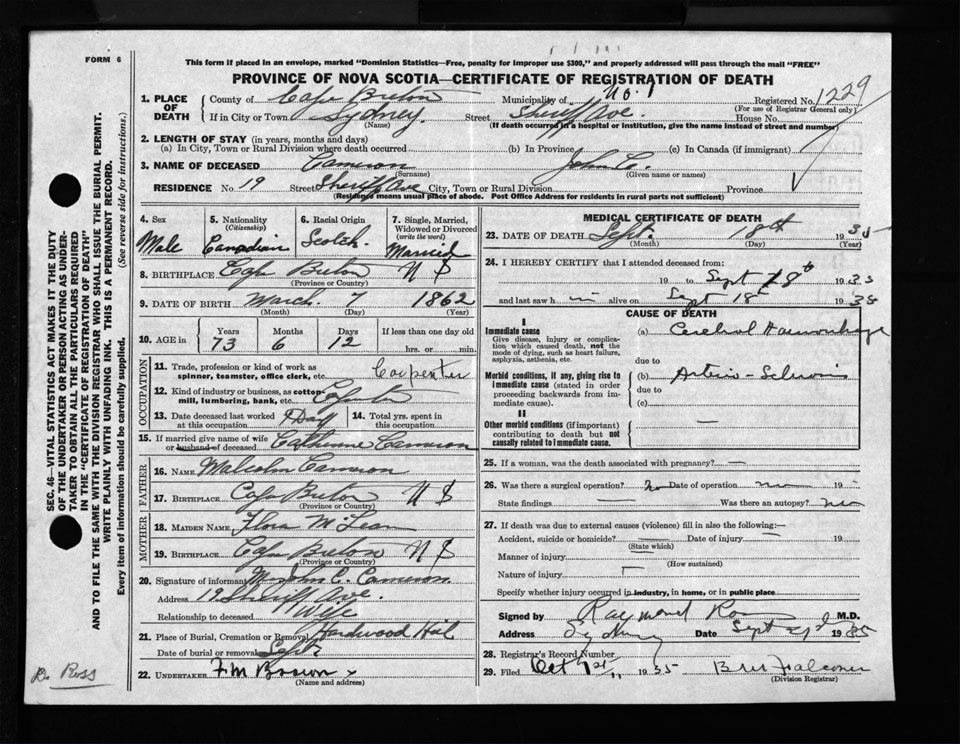 FORM 6
This form if placed in an envelope, marked "Dominion Statistics—Free, penalty for improper use $300," and properly addressed will pass through the mail "FREE"
PROVINCE OF NOVA SCOTIA—CERTIFICATE OF REGISTRATION OF DEATH
1. PLACE OF DEATH County of Cape Breton Municipality of No. 1 Registered No. 1229
(For use of Registrar General only)
If in City or Town Sydney Street Sheriff Ave. House No.
(Name) (If death occurred in a hospital or institution, give the name instead of street and number)
2. LENGTH OF STAY (in years, months and days)
(a) In City, Town or Rural Division where death occurred (b) In Province (c) In Canada (if immigrant)
3. NAME OF DECEASED Cameron John C.
(Surname) (Given name or names)
RESIDENCE No. 19 Street Sheriff Ave City, Town or Rural Division Province
(Residence means usual place of abode. Post Office Address for residents in rural parts not sufficient)
4. Sex 5. Nationality (Citizenship) 6. Racial Origin 7. Single, Married, Widowed or Divorced (write the word)
Male Canadian Scotch Married
8. BIRTHPLACE Cape Breton N S
(Province or Country)
9. DATE OF BIRTH March 7 1862
(Month) (Day) (Year)
10. AGE in Years Months Days If less than one day old
73 6 12 hrs. or min.
OCCUPATION
11. Trade, profession or kind of work as spinner, teamster, office clerk, etc. Carpenter
12. Kind of industry or business, as cotton-mill, lumbering, bank, etc.
13. Date deceased last worked at this occupation 14. Total yrs. spent in this occupation
15. If married give name of wife or husband of deceased Catherine Cameron
FATHER
16. NAME Malcolm Cameron
17. BIRTHPLACE Cape Breton N S
(Province or Country)
MOTHER
18. MAIDEN NAME Flora McLean
19. BIRTHPLACE Cape Breton N S
(Province or Country)
20. Signature of informant Mrs John C. Cameron
Address 19 Sheriff Ave.
Relationship to deceased Wife
21. Place of Burial, Cremation or Removal Hardwood Hill
Date of burial or removal Sept.
22. UNDERTAKER F M Brown
(Name and address)
MEDICAL CERTIFICATE OF DEATH
23. DATE OF DEATH Sept. 18th 1935
(Month) (Day) (Year)
24. I HEREBY CERTIFY that I attended deceased from:
19 to Sept 18th 1935
and last saw him alive on Sept 18 1935
CAUSE OF DEATH
I
Immediate cause (a) Cerebral Haemorrhage
Give disease, injury or complication which caused death, not the mode of dying, such as heart failure, asphyxia, asthenia, etc.
due to
Morbid conditions, if any, giving rise to immediate cause (stated in order proceeding backwards from immediate cause). (b) Arterio-Sclerosis
due to
(c)
II
Other morbid conditions (if important) contributing to death but not causally related to immediate cause. —
25. If a woman, was the death associated with pregnancy? —
26. Was there a surgical operation? no Date of operation 19
State findings — Was there an autopsy? no
27. If death was due to external causes (violence) fill in also the following:—
Accident, suicide or homicide? — Date of injury — 19
(State which)
Manner of injury
(How sustained)
Nature of injury
Specify whether injury occurred in industry, in home, or in public place
Signed by Raymond Ross M.D.
Address Sydney Date Sept 1935
28. Registrar's Record Number
29. Filed Oct 1st 1935 B M Falconer
(Division Registrar)
SEC. 46—VITAL STATISTICS ACT MAKES IT THE DUTY
OF THE UNDERTAKER OR PERSON ACTING AS UNDER-
TAKER TO OBTAIN ALL THE PARTICULARS REQUIRED
IN THE "CERTIFICATE OF REGISTRATION OF DEATH"
AND TO FILE THE SAME WITH THE DIVISION REGISTRAR WHO SHALL ISSUE THE BURIAL PERMIT.
WRITE PLAINLY WITH UNFADING INK. THIS IS A PERMANENT RECORD.
Every item of information should be carefully supplied. (See reverse side for instructions.)
D. Ross